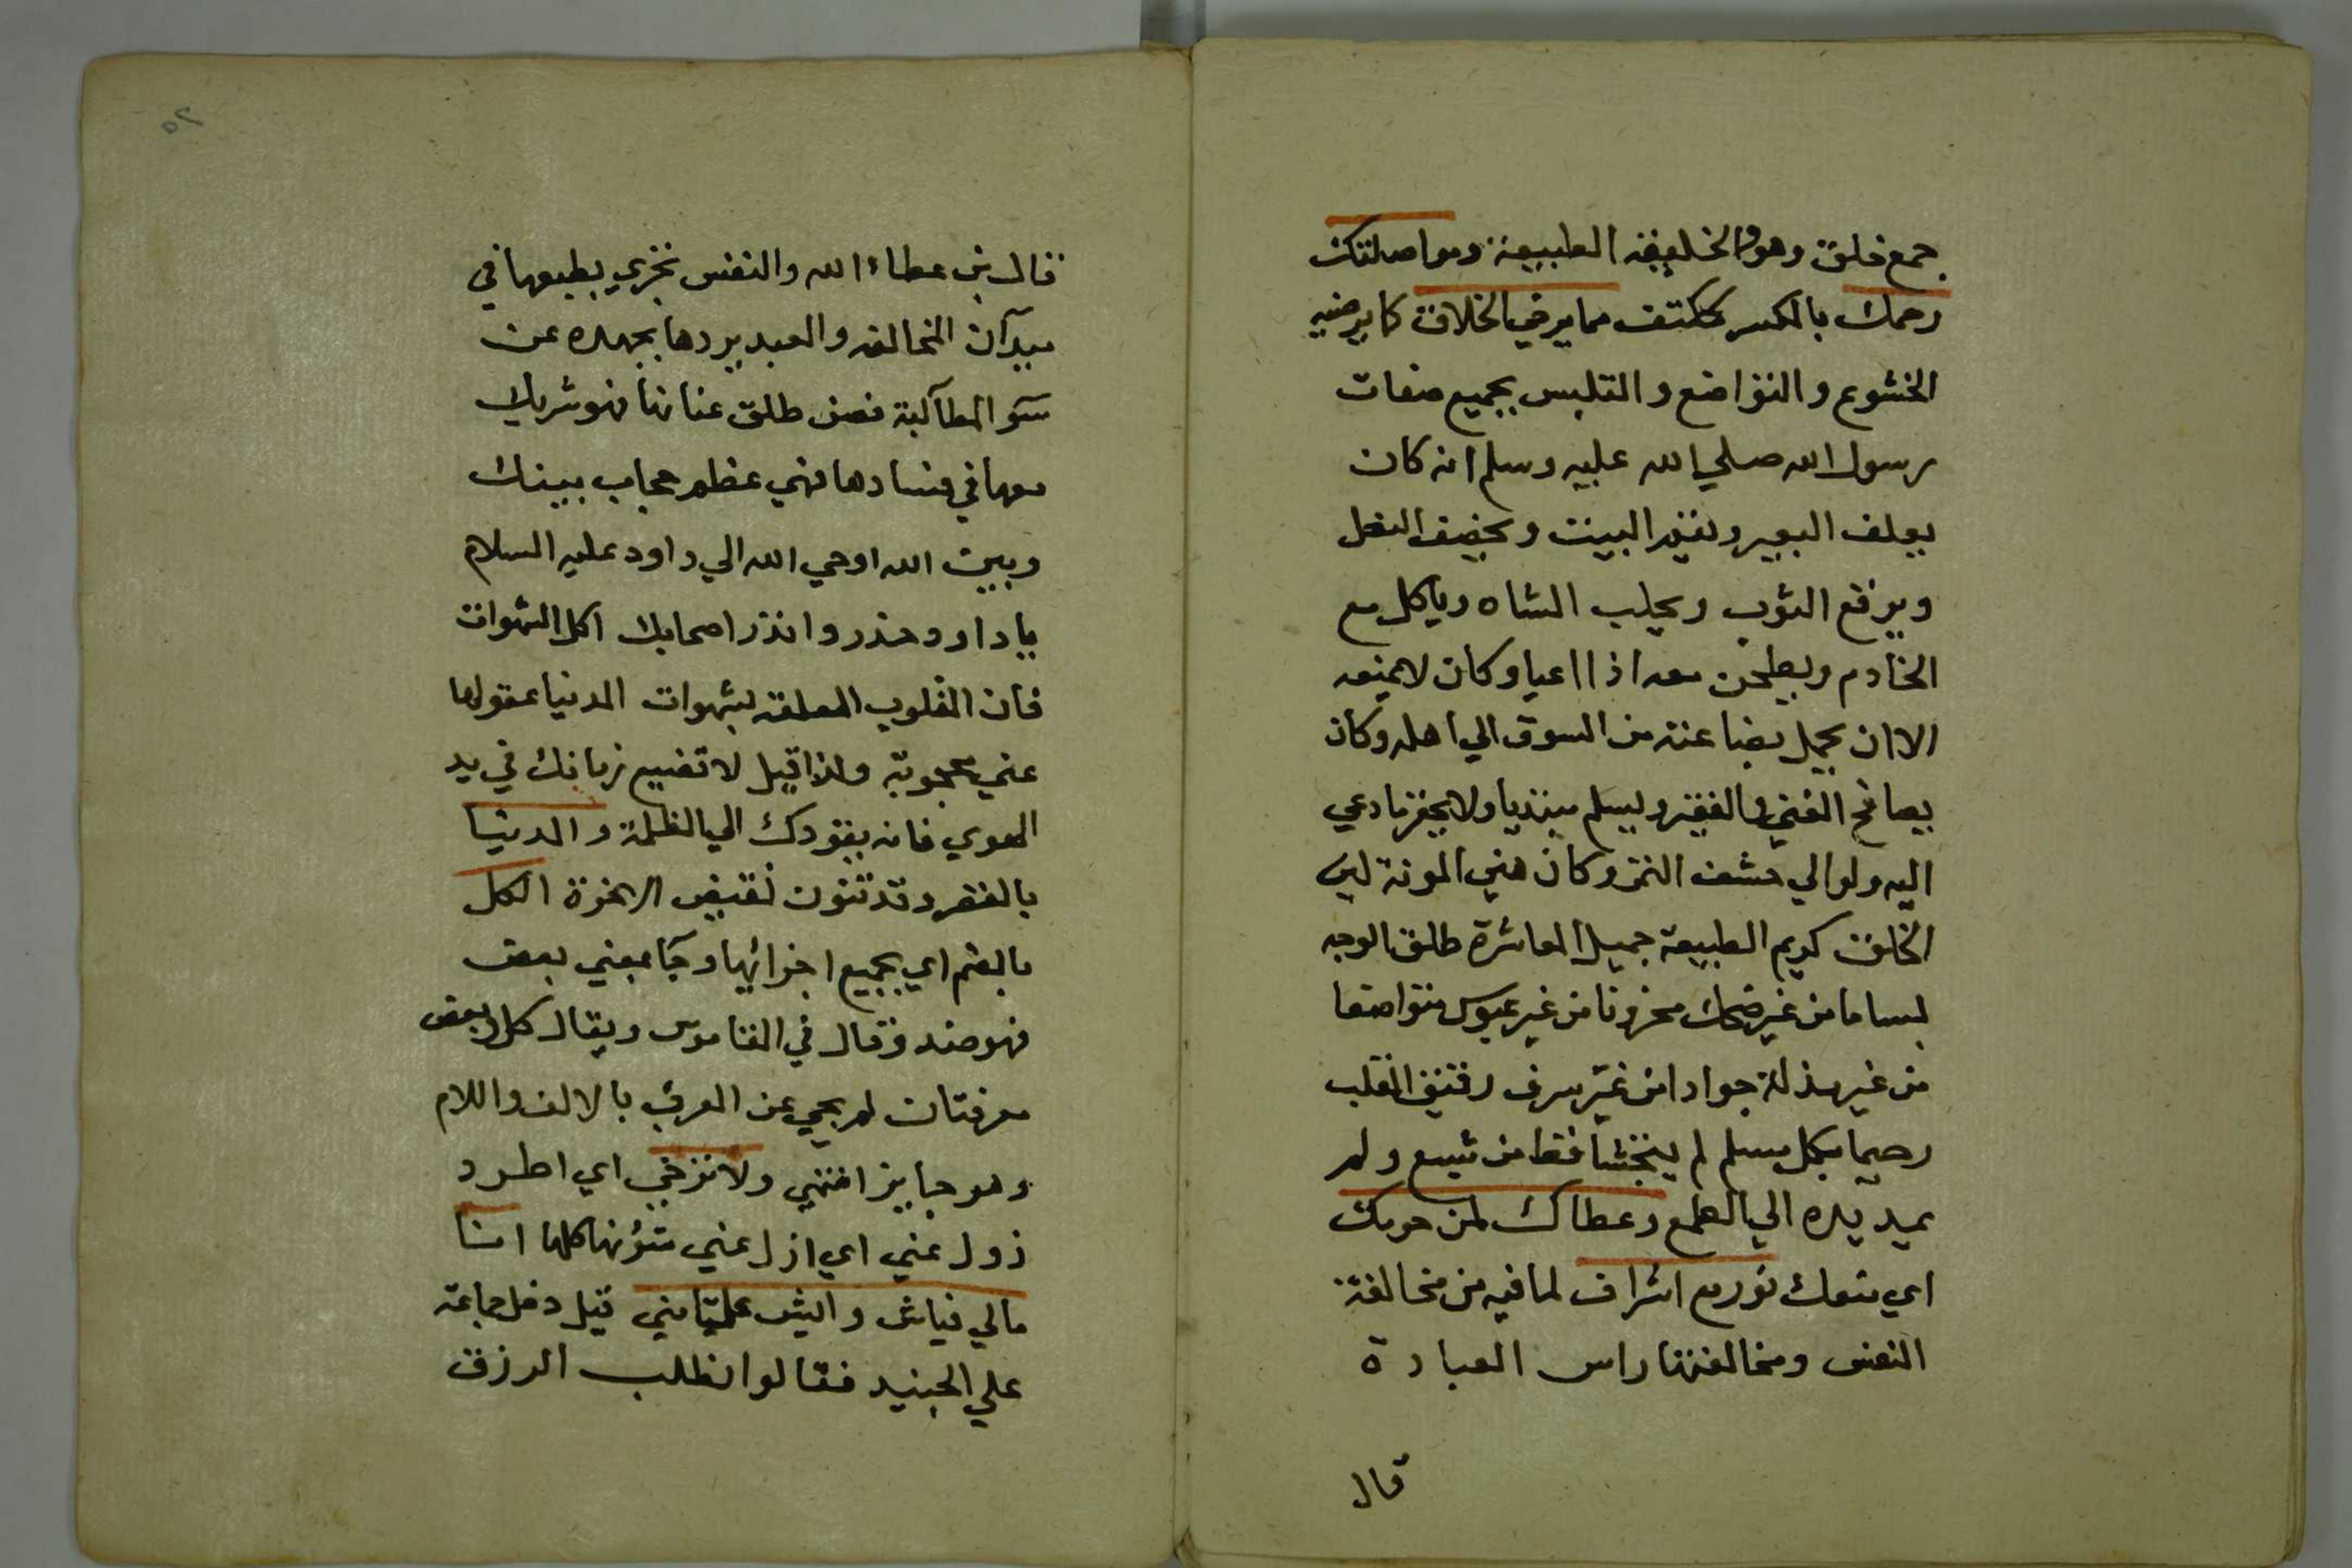 جمع خلق وهو الخليفه الطبيعة ومواصلتك
رحمك بالكسر ككتف مما يرضي الخلاق كما يرضيه
الخشوع والتواضع والتلبس بجميع صفات
رسول الله صلي الله عليه وسلم انه كان
يعلف البعير ويقيم البيت ويخصف النعل
ويرقع الثوب ويحلب الشاه وياكل مع
الخادم ويطحن معه اذا اعيا وكان لا يمنعه
الا ان يحمل بضاعته من السوق الي اهله وكان
يصافح الغني والفقير ويسلم مبتديا ولا يحقر ما دعي
اليه ولو الي حشف التمر وكان هني المونة لين
الخلق كريم الطبيعة جميل المعاشرة طلق الوجه
بساما من غير ضحك محزونا من غير عبوس متواضعا
من غير مذلة جوادا من غير سرف رقيق القلب
رحيما بكل مسلم لم يتجشا قط من شبع ولم
يمد يده الي الطمع وعطاك لمن حرمك
اي منعك تورع اشراف لما فيه من مخالفة
النفس ومخالفتها راس العبادة
قال
٥٢
قال بن عطاء الله والنفس تجري بطبعها في
ميدآن المخالفه والعبد يردها بجهده عن
سو المطآلبة فمن طلق عنانها فهو شريك
معها في فسادها فهي عظم حجاب بينك
وبين الله اوحي الله الي داود عليه السلام
يا داود حذر وانذر اصحابك اكل الشهوات
فان القلوب المعلقه بشهوات الدنيا عقولها
عني محجوبة ولذا قيل لا تضيع زمانك في يد
الهوي فانه يقودك الي الظلمة والدنيا
بالقصر وقد تنون نقيض الاخرة الكل
بالضم اي بجميع اجزائها وجآ بمعني بعض
فهو ضد وقال في القاموس ويقال كل وبعض
معرفتان لم يجي عن العرب بالالف واللام
وهو جايز انتهي ولا تزخي اي اطرد
زول عني اي ازل عني شؤنها كلها انسا
مالي فياش واليش علينا مني قيل دخل جماعة
علي الجنيد فقالوا نطلب الرزق